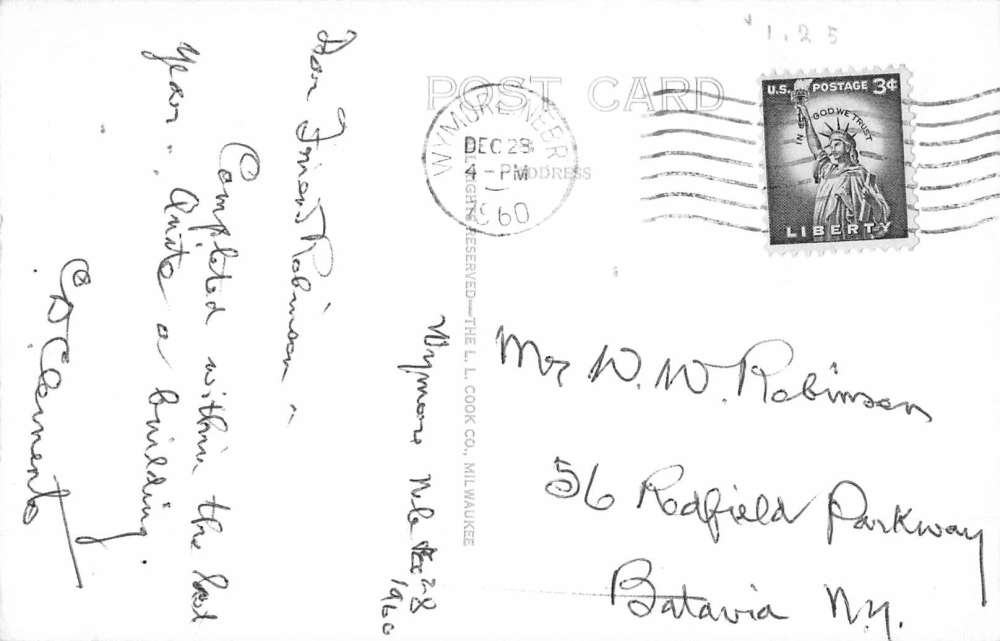 $1.25
POST CARD
ADDRESS
WYMORE, NEBR.
DEC 28
4 - PM
1960
U.S. POSTAGE 3¢
IN GOD WE TRUST
LIBERTY
Wymore Neb Dec 28
1960
Dear Friend Robinson
Completed within the last
year. Quite a building.
CD Clements
ALL RIGHTS RESERVED—THE L. L. COOK CO., MILWAUKEE
Mr W. W. Robinson
56 Redfield Parkway
Batavia N.Y.